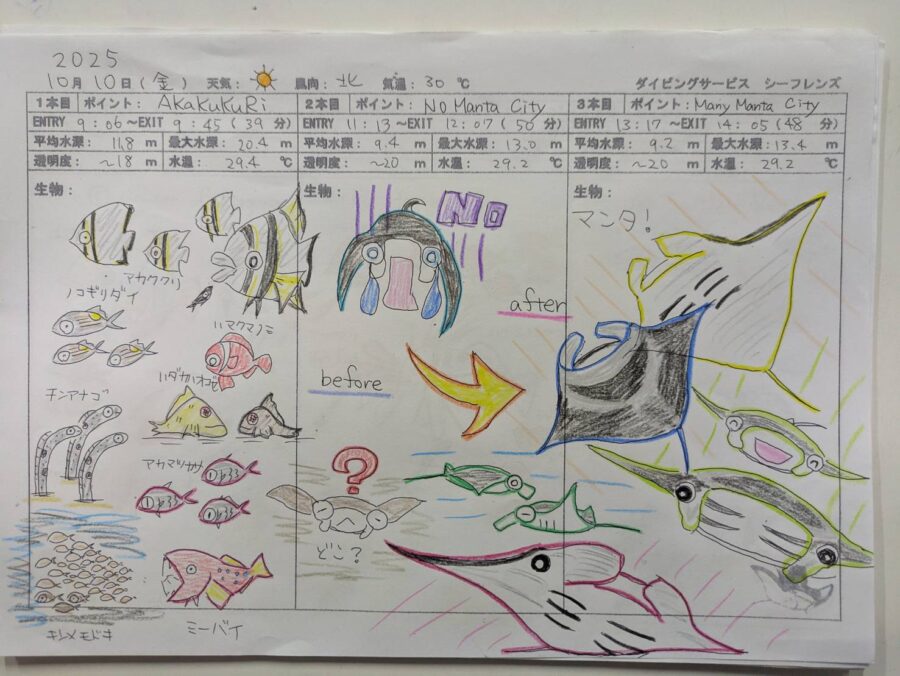 2025
10月10日(金) 天気: 風向:北 気温:30 ℃ ダイビングサービス シーフレンズ
1本目 ポイント: AKAKUKURi
ENTRY 9:06 ～EXIT 9:45 (39 分)
平均水深: 11.8 m 最大水深: 20.4 m
透明度: ～18 m 水温: 29.4 ℃
生物:
アカククリ
ノコギリダイ
ハマクマノミ
チンアナゴ
ハダカハオコゼ
アカマツカサ
キンメモドキ
ミーバイ
2本目 ポイント: No Manta City
ENTRY 11:13 ～EXIT 12:07 (50 分)
平均水深: 9.4 m 最大水深: 13.0 m
透明度: ～20 m 水温: 29.2 ℃
生物:
No
before
?
どこ?
3本目 ポイント: Many Manta City
ENTRY 13:17 ～EXIT 14:05 (48 分)
平均水深: 9.2 m 最大水深: 13.4 m
透明度: ～20 m 水温: 29.2 ℃
生物:
マンタ!
after